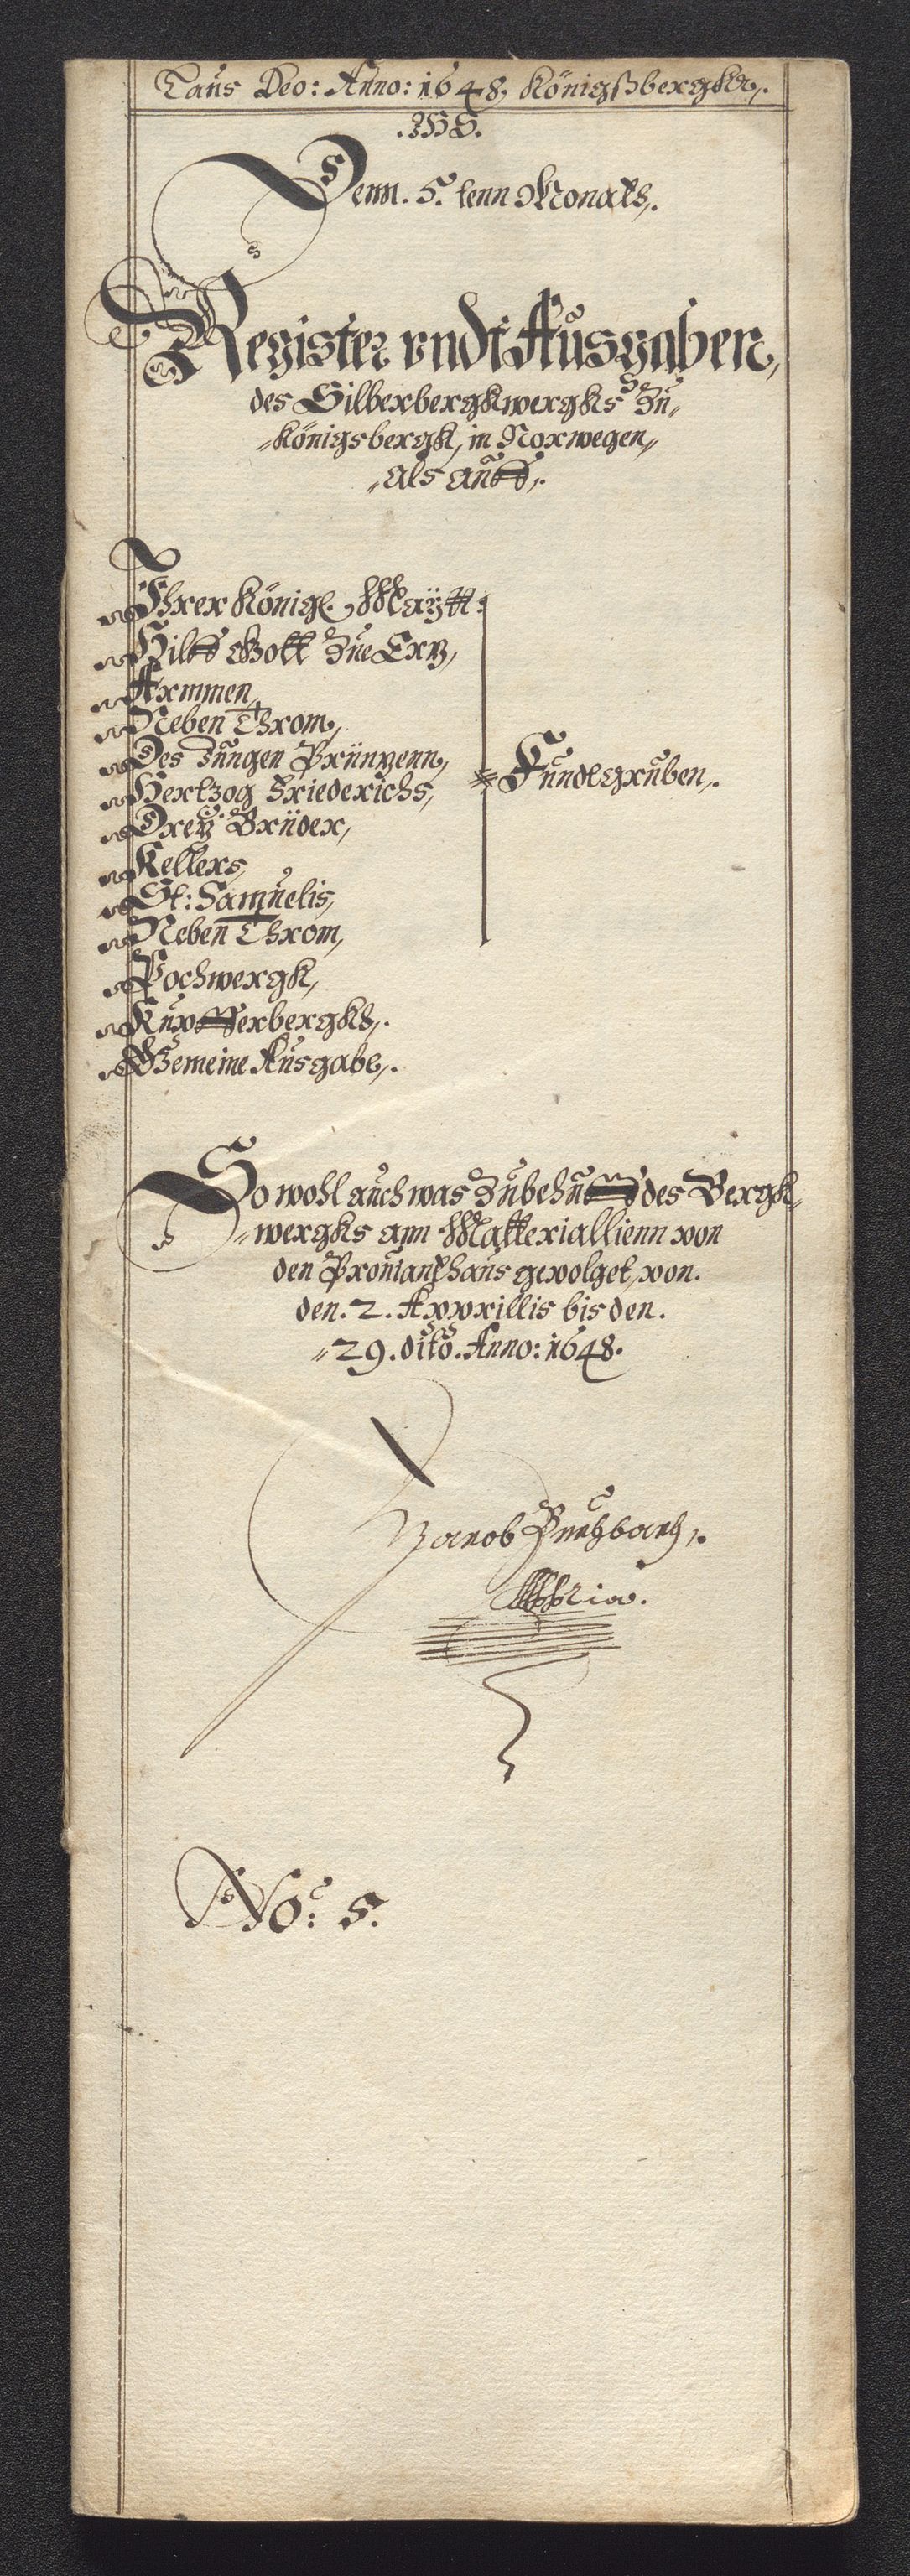 Laus Deo: Anno: 1648, Königsbergk,.
.IHS.
Denn. 5. tenn Monats,.
Register vndt Ausgaben,
des Silberbergkwergks Zu„
„Königsbergk, in Norwegen„
„als auff,.
Ihrer Königl. Maÿtt:
Hilff Gott Zue Ertz,
Armmen,
Neben Throm,
Des Jungen Printzenn,
Hertzog Friederichs,
Fundtgruben,.
Dreÿ Brüder,
Kellers,
St: Samuelis,
Neben Throm,
Pochwergk,
Kupfferbergks,.
Gemeine Ausgabe,.
So wohl auch was Zu behuff des Bergk„
„wergks ann Matteriallienn von
den Proviandthaus gevolget, von.
den. 2. Apprillis bis den.
„29. dito. Anno: 1648.
Jacob
No: 5.